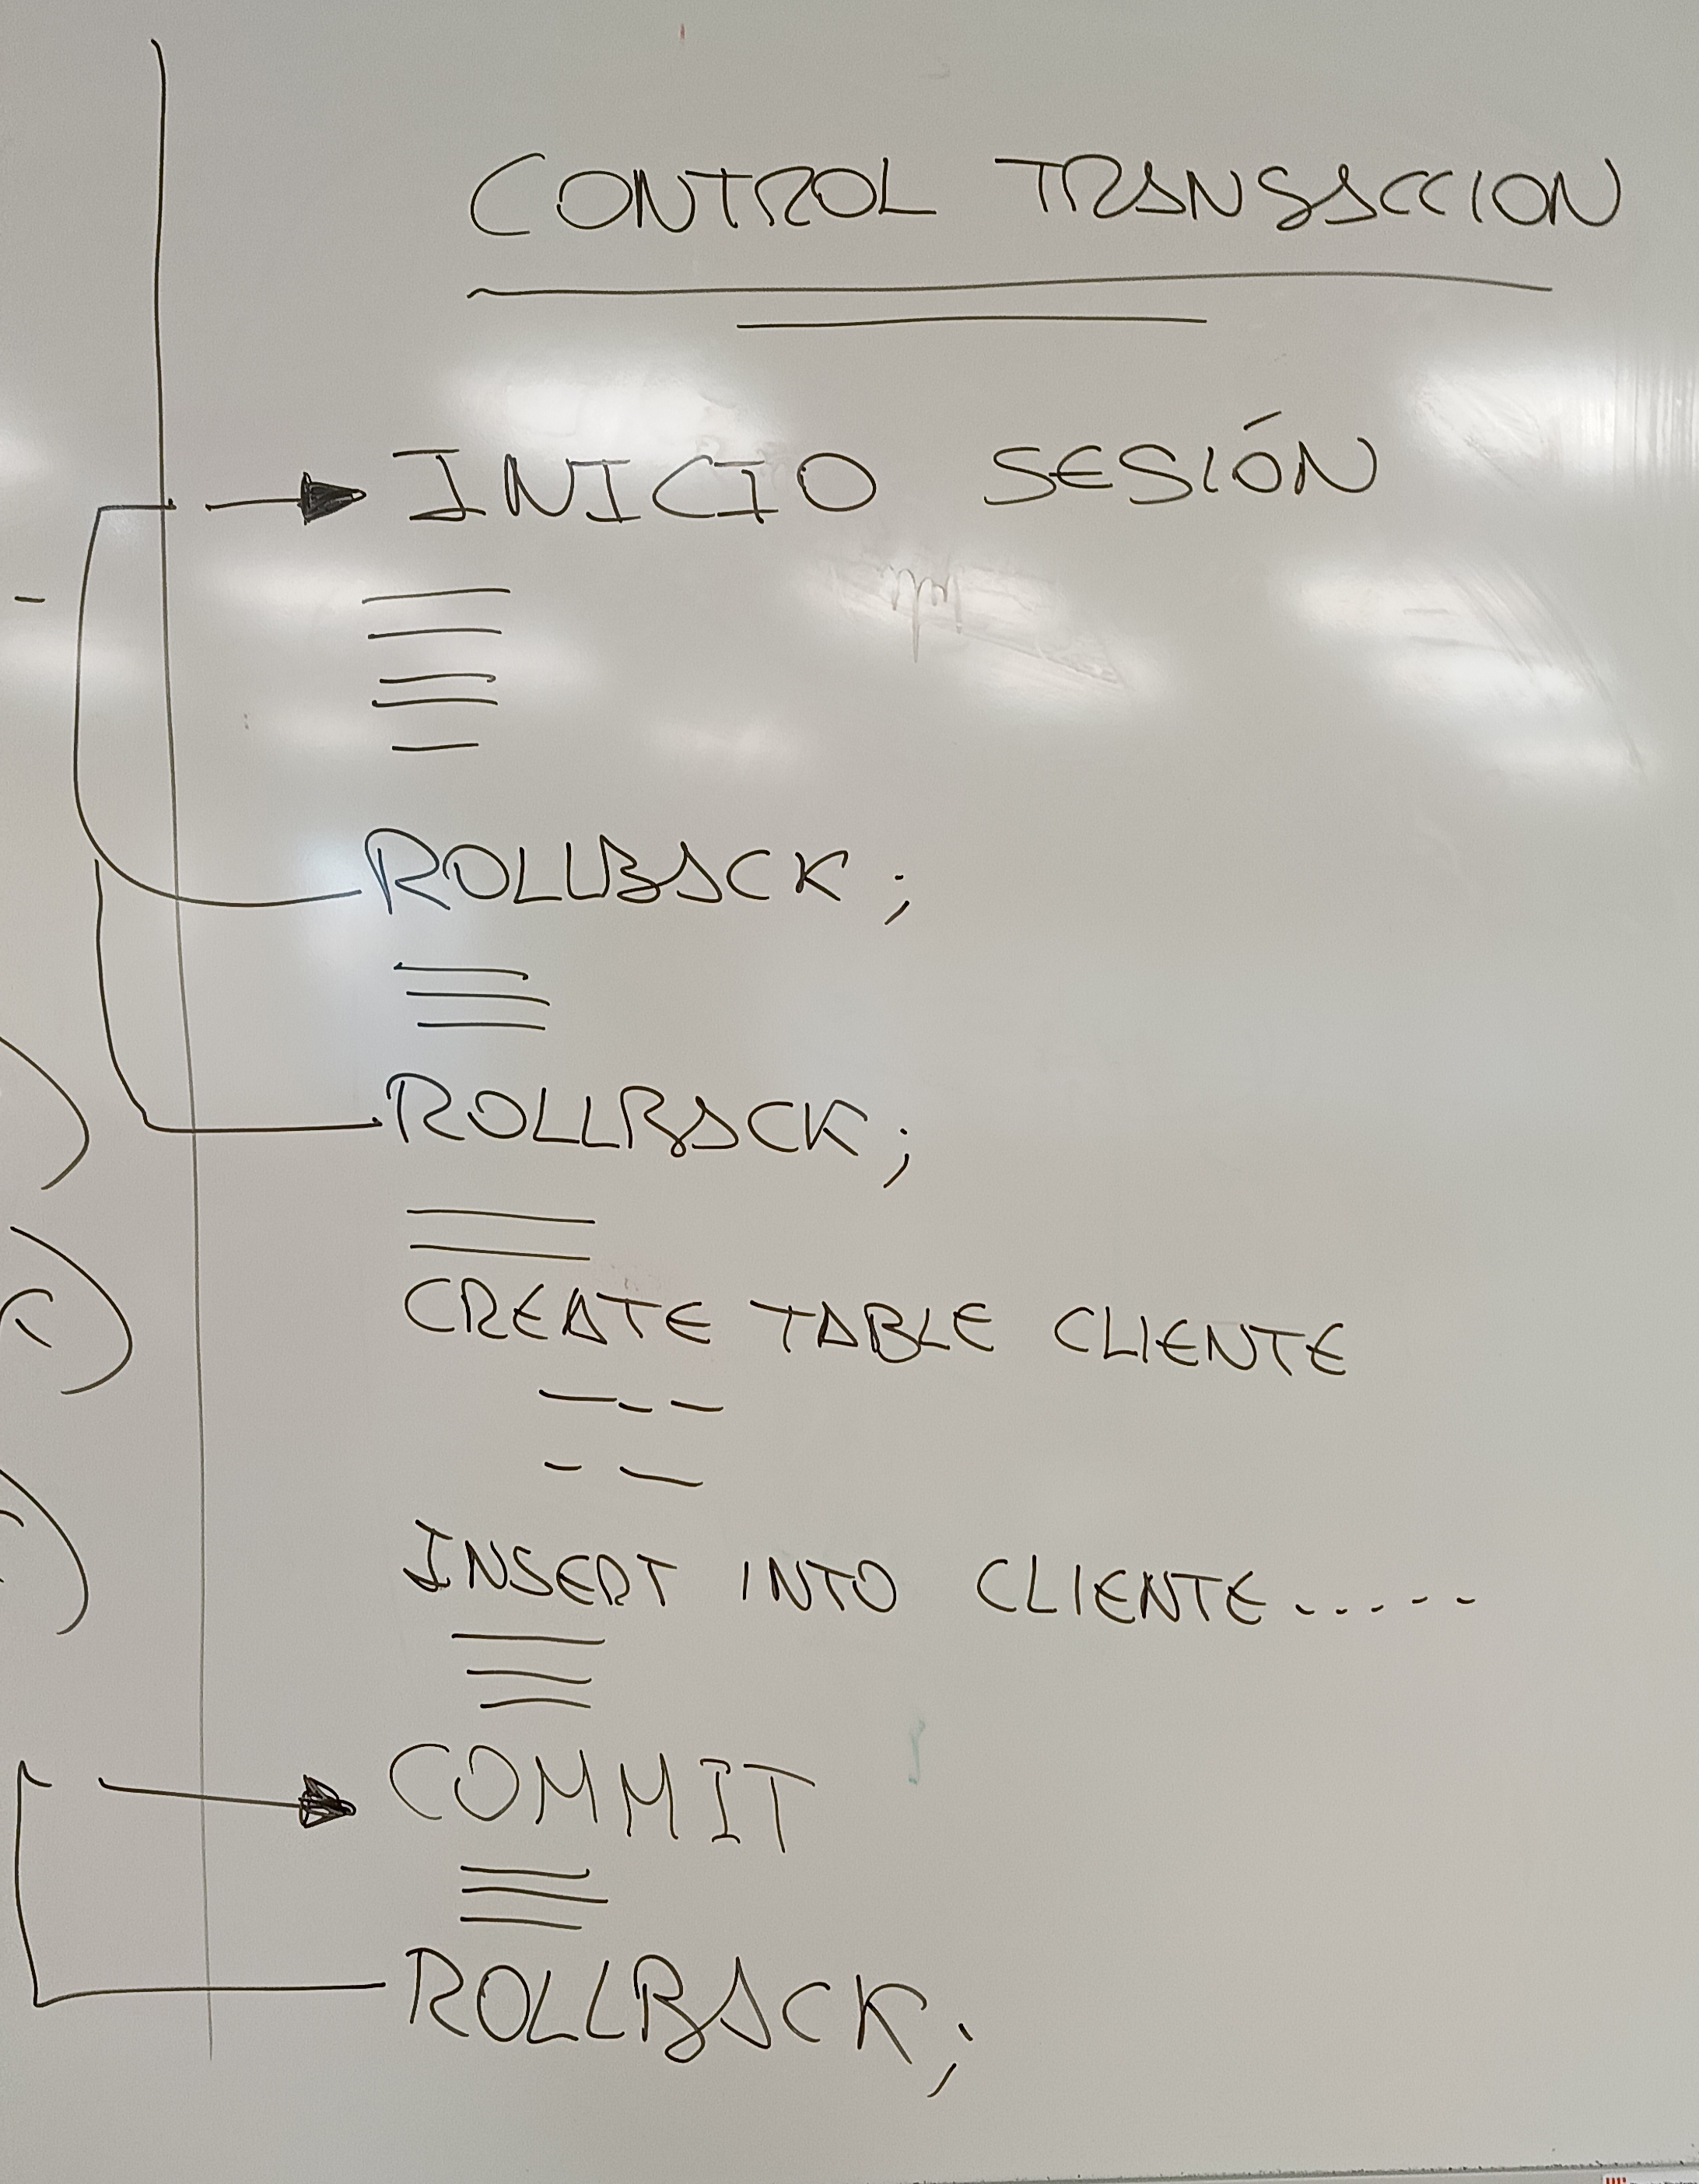 CONTROL TRANSACCION
INICIO SESIÓN
ROLLBACK;
ROLLBACK;
CREATE TABLE CLIENTE
INSERT INTO CLIENTE.....
COMMIT
ROLLBACK;